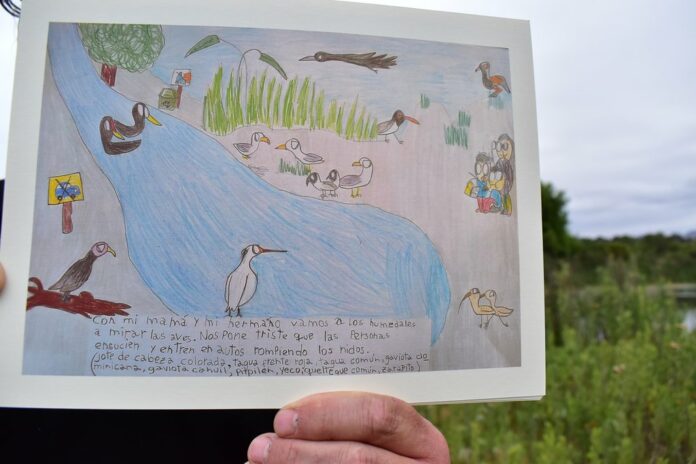 con mi mamá y mi hermano vamos a los humedales
a mirar las aves. Nos pone triste que las Personas
ensucien y entren en autos rompiendo los nidos.
(Jote de cabeza colorada, tagua frente roja, tagua común, gaviota do
minicana, gaviota cahuil, Pitpilén, yeco, queltehue común, zarapito)